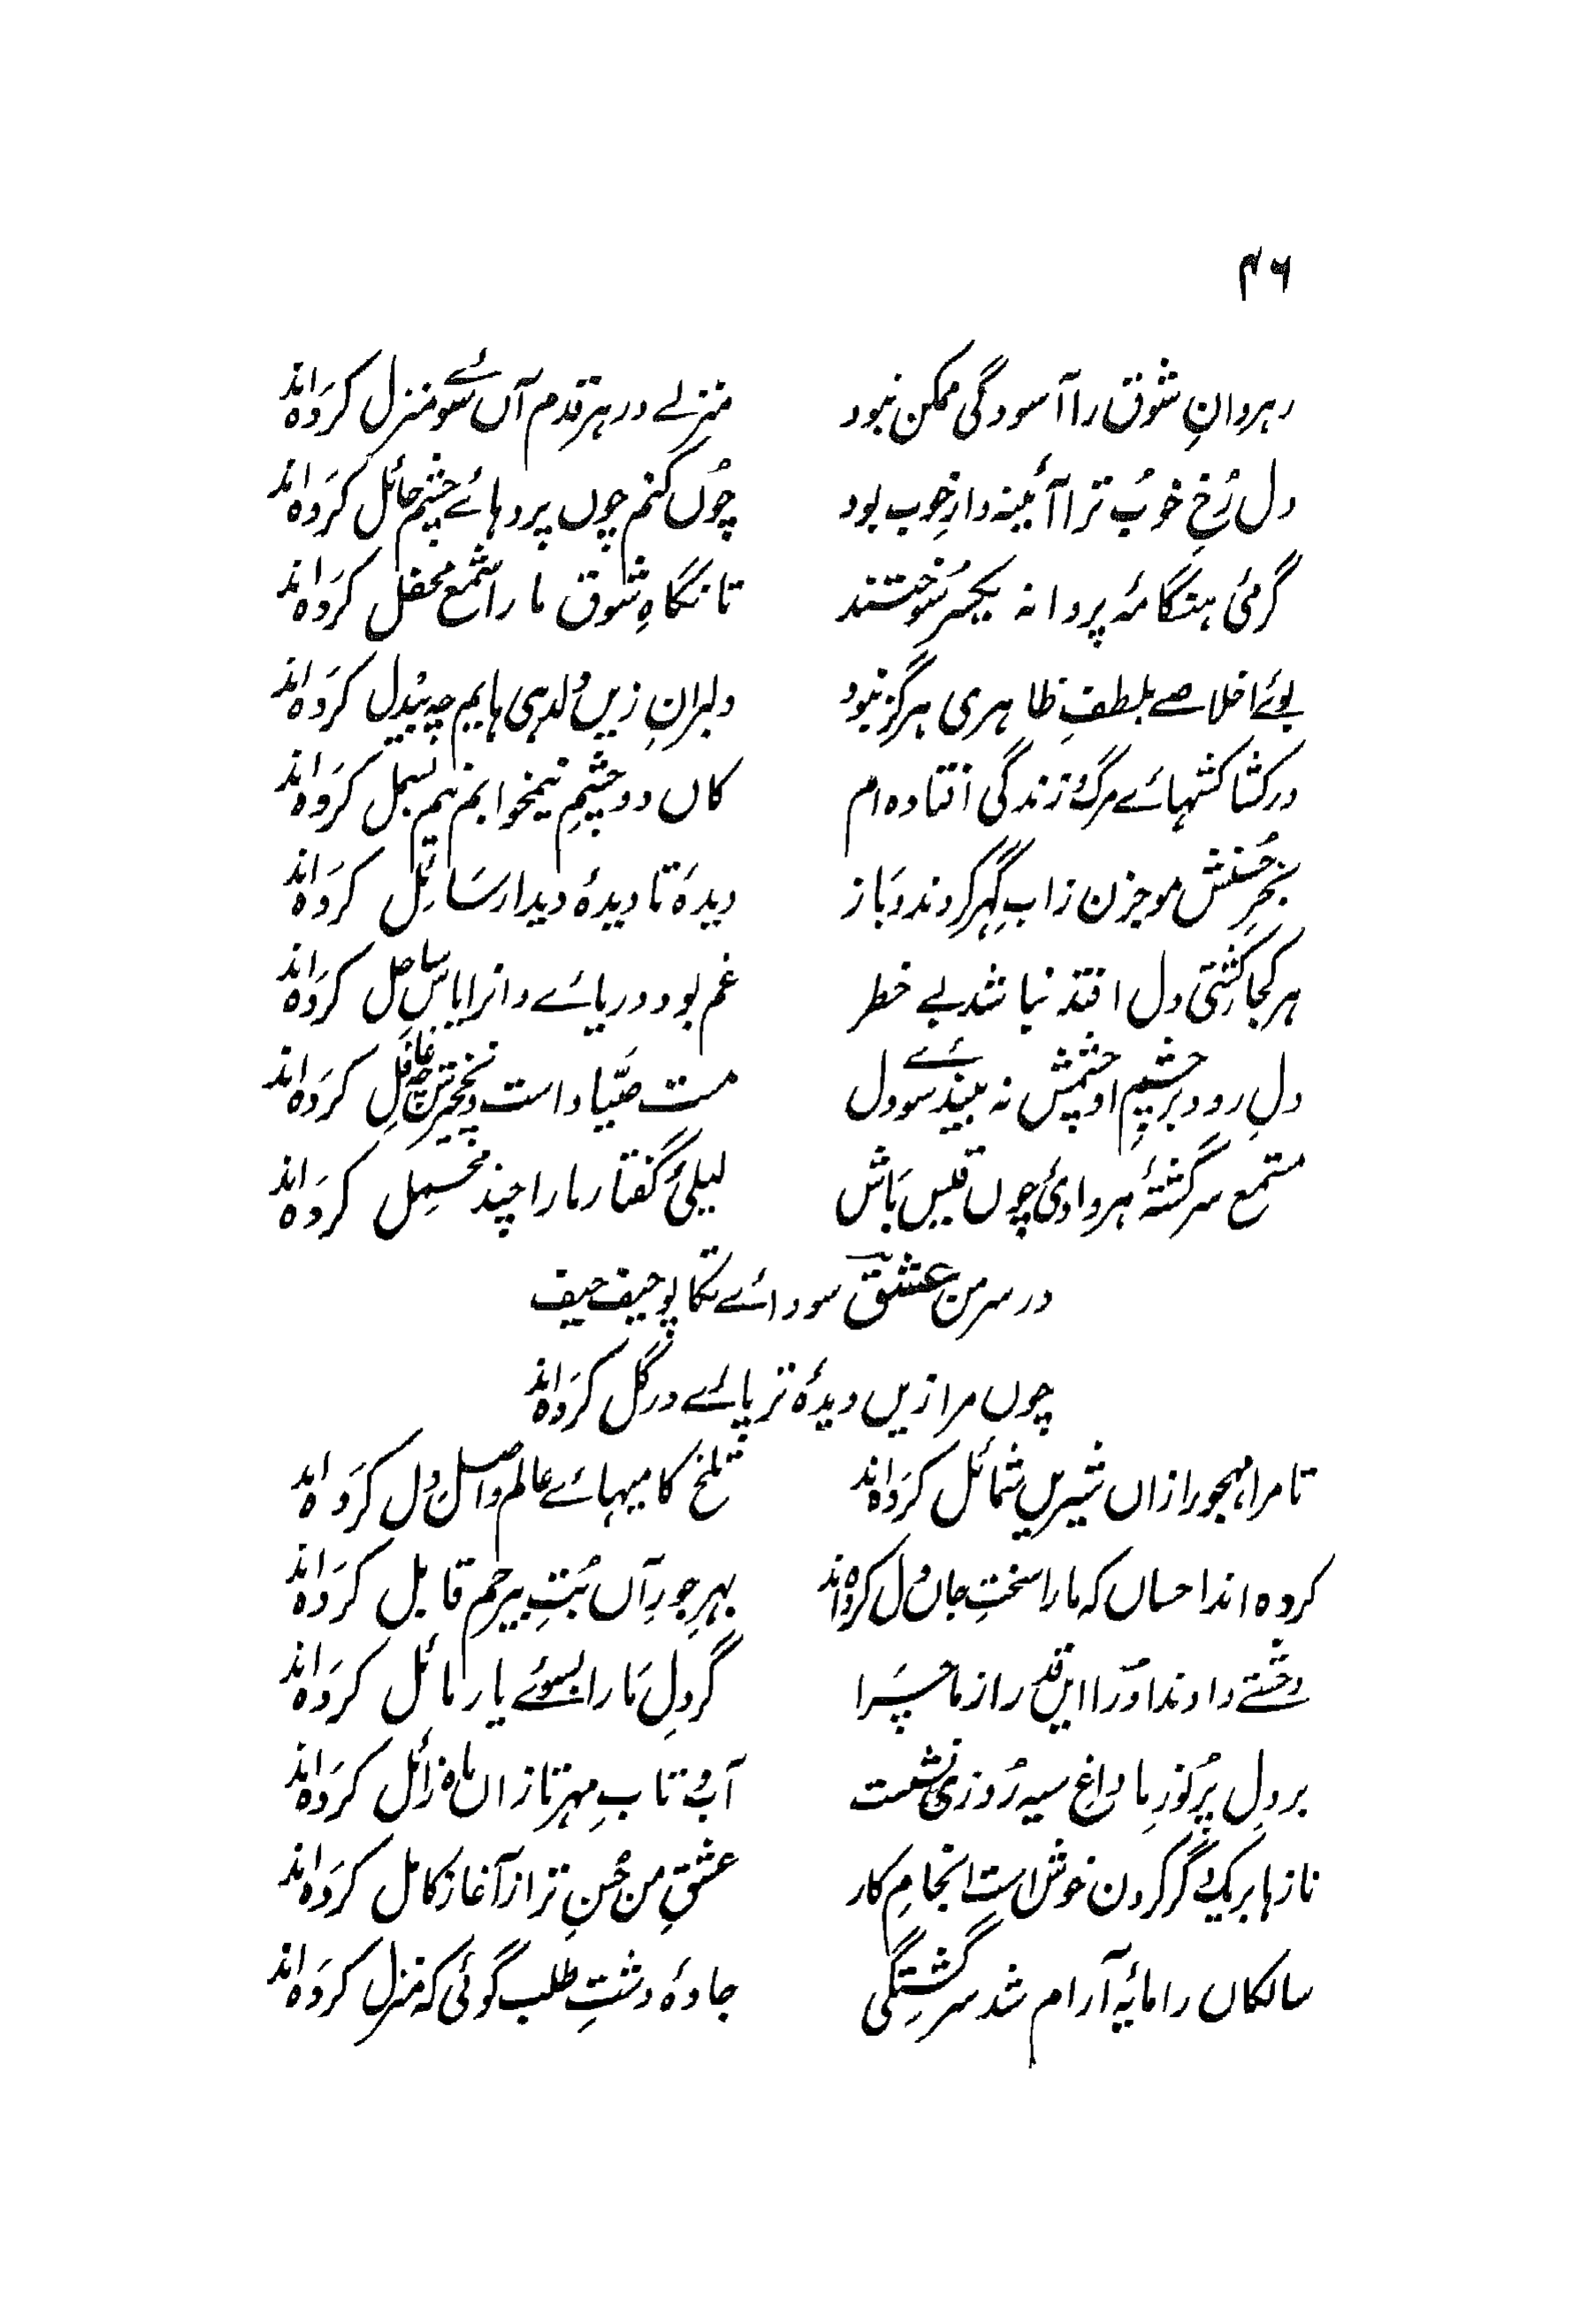 ۴۶
رہروانِ شوق را آسودگی ممکن نبود منزلے در ہر قدم آں سوئے منزل کردہ اند
دل رُخِ خوبُ ترا آئینہ دارِ خوب بود چُوں کنم چوں پردہائے چشم حائل کردہ اند
گرمیٔ ہنگامۂ پروانہ یکسر سُوختند تا نگاہِ شوق ما را شمع محفل کردہ اند
بوئے اخلاصے بلطفِ ظاہری ہرگز نبود دلبرانِ زیں دلدہی ہایم چہ بیدل کردہ اند
در کشاکشہائے مرگ و زندگی افتادہ ام کاں دو چشمِ نیمخوابم نیم بسمل کردہ اند
بحرِ حُسنش موجزن زابِ گہر کردند و باز دیدہ تا دیدۂ دیدار سائل کردہ اند
ہر کجا کشتیٔ دل افتد نباشد بے خطر غم بود دریائے و انرا یاس ساحل کردہ اند
دلِ رود بر چشمِ او چشمش نہ بیند سوئے دل مست صیّاد است و نخچیرش چہ غافل کردہ اند
مستمع سرگشتۂ ہر وادیٔ چوں قیس باش لیلیٔ گفتار ما را چند محمل کردہ اند
در سر من عشق سودائے تکاپو حیف حیف
چوں مرا زیں دیدۂ تر پائے در گل کردہ اند
تا مرا مہجور ازاں شیریں شمائل کردہ اند تلخ کامیہائے عالم واصل دل کردہ اند
کردہ اند احساں کہ ما را سخت جان و دل کردہ اند بہرِ جورِ آں بُتِ بیرحم قابل کردہ اند
وحشتے دادند او را ایں قدر از ما چرا گر دلِ ما را بسوئے یار مائل کردہ اند
بر دلِ پُر نُورِ ما داغِ سیہ رُوزی نشست آب و تابِ مہر تا زاں ماہ زائل کردہ اند
نازہا بر یک دگر کردن خوش است انجامِ کار عشقِ من حُسنِ ترا ز آغاز کامل کردہ اند
سالکاں را مایۂ آرام شد سرگشتگی جادۂ دشتِ طلب گوئی کہ منزل کردہ اند